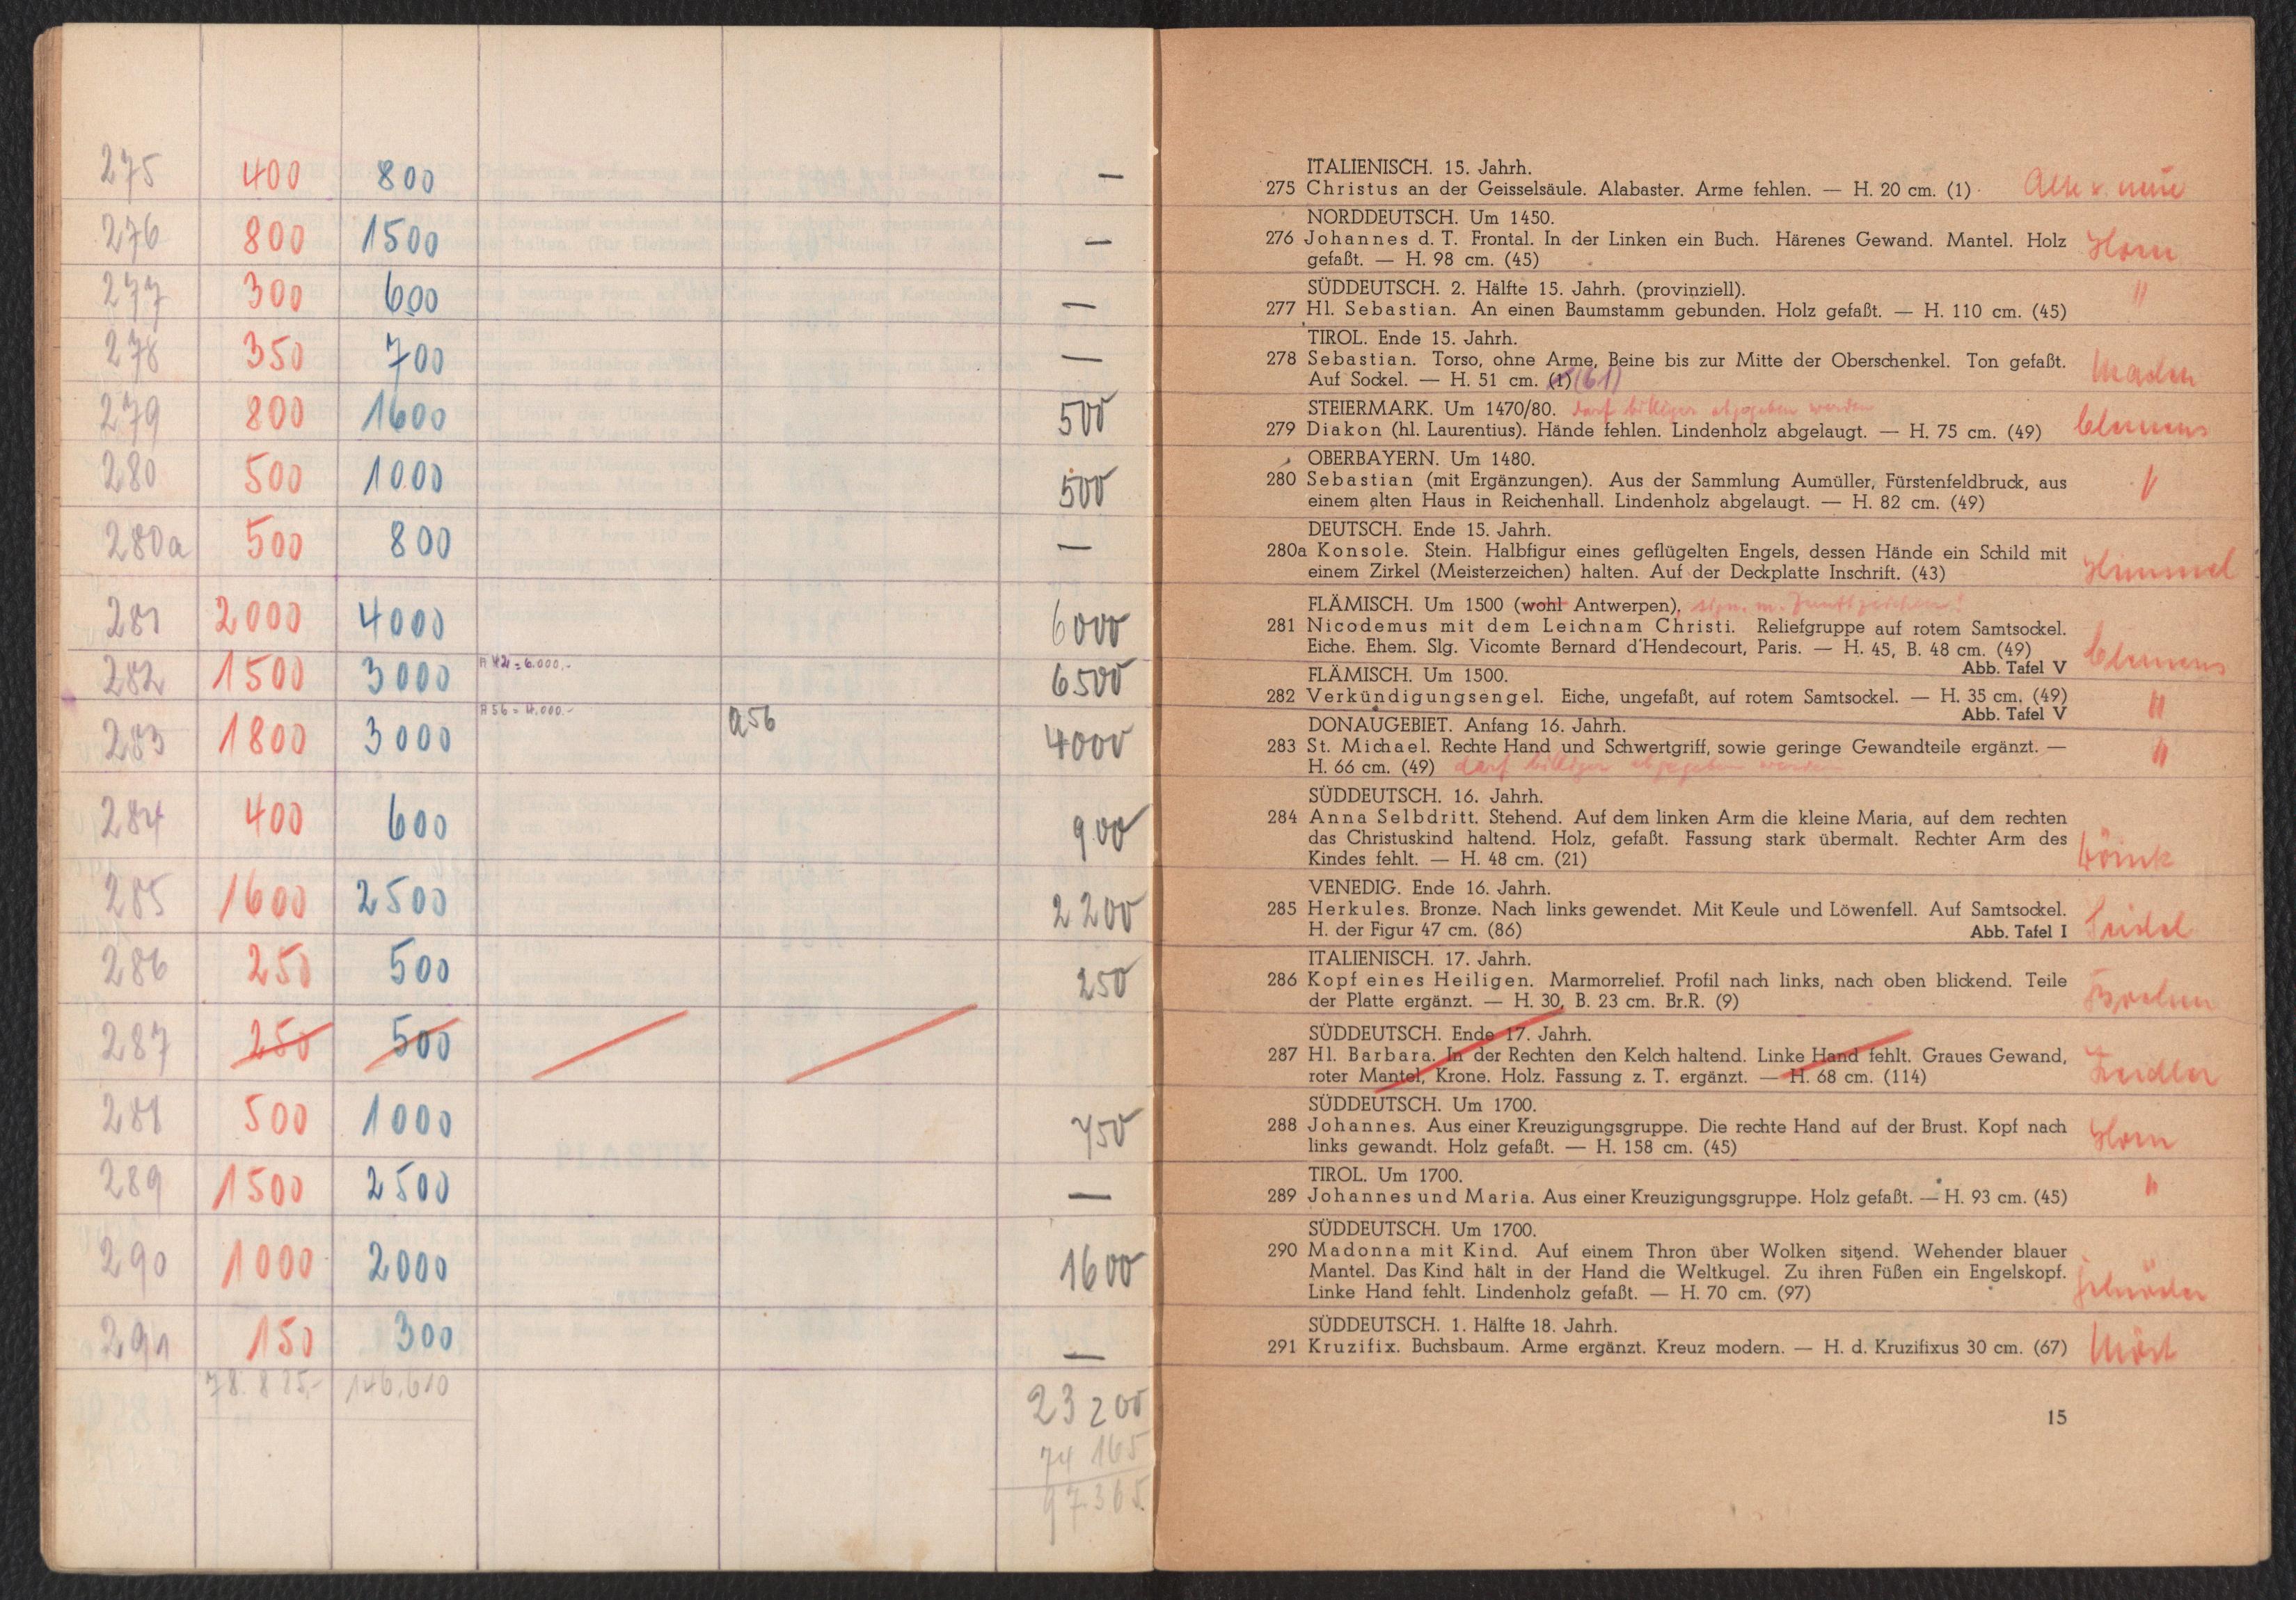 275 400 800 —
276 800 1500 —
277 300 600 —
278 350 700 —
279 800 1600 500
280 500 1000 500
280a 500 800 —
281 2000 4000 6000
282 1500 3000 A 42 = 6.000.- 6500
283 1800 3000 A 56 = 4.000.- a56 4000
284 400 600 900
285 1600 2500 2200
286 250 500 250
287 250 500
288 500 1000 750
289 1500 2500 —
290 1000 2000 1600
291 150 300 —
78.825,- 146.610 23200
74 165
97.365
ITALIENISCH. 15. Jahrh.
275 Christus an der Geisselsäule. Alabaster. Arme fehlen. — H. 20 cm. (1) Alte u. neue
NORDDEUTSCH. Um 1450.
276 Johannes d. T. Frontal. In der Linken ein Buch. Härenes Gewand. Mantel. Holz Horn
gefaßt. — H. 98 cm. (45)
SÜDDEUTSCH. 2. Hälfte 15. Jahrh. (provinziell). "
277 Hl. Sebastian. An einen Baumstamm gebunden. Holz gefaßt. — H. 110 cm. (45)
TIROL. Ende 15. Jahrh.
278 Sebastian. Torso, ohne Arme, Beine bis zur Mitte der Oberschenkel. Ton gefaßt.
Auf Sockel. — H. 51 cm. (1) (61)
STEIERMARK. Um 1470/80. darf billiger abgegeben werden
279 Diakon (hl. Laurentius). Hände fehlen. Lindenholz abgelaugt. — H. 75 cm. (49) Clemens
OBERBAYERN. Um 1480.
280 Sebastian (mit Ergänzungen). Aus der Sammlung Aumüller, Fürstenfeldbruck, aus "
einem alten Haus in Reichenhall. Lindenholz abgelaugt. — H. 82 cm. (49)
DEUTSCH. Ende 15. Jahrh.
280a Konsole. Stein. Halbfigur eines geflügelten Engels, dessen Hände ein Schild mit
einem Zirkel (Meisterzeichen) halten. Auf der Deckplatte Inschrift. (43) Himmel
FLÄMISCH. Um 1500 (wohl Antwerpen). sign. m. Zunftzeichen!
281 Nicodemus mit dem Leichnam Christi. Reliefgruppe auf rotem Samtsockel.
Eiche. Ehem. Slg. Vicomte Bernard d'Hendecourt, Paris. — H. 45, B. 48 cm. (49) Clemens
Abb. Tafel V
FLÄMISCH. Um 1500.
282 Verkündigungsengel. Eiche, ungefaßt, auf rotem Samtsockel. — H. 35 cm. (49) "
Abb. Tafel V
DONAUGEBIET. Anfang 16. Jahrh.
283 St. Michael. Rechte Hand und Schwertgriff, sowie geringe Gewandteile ergänzt. — "
H. 66 cm. (49) darf billiger abgegeben werden
SÜDDEUTSCH. 16. Jahrh.
284 Anna Selbdritt. Stehend. Auf dem linken Arm die kleine Maria, auf dem rechten
das Christuskind haltend. Holz, gefaßt. Fassung stark übermalt. Rechter Arm des
Kindes fehlt. — H. 48 cm. (21)
VENEDIG. Ende 16. Jahrh.
285 Herkules. Bronze. Nach links gewendet. Mit Keule und Löwenfell. Auf Samtsockel.
H. der Figur 47 cm. (86) Abb. Tafel I Seidel
ITALIENISCH. 17. Jahrh.
286 Kopf eines Heiligen. Marmorrelief. Profil nach links, nach oben blickend. Teile
der Platte ergänzt. — H. 30, B. 23 cm. Br.R. (9)
SÜDDEUTSCH. Ende 17. Jahrh.
287 Hl. Barbara. In der Rechten den Kelch haltend. Linke Hand fehlt. Graues Gewand,
roter Mantel, Krone. Holz. Fassung z. T. ergänzt. — H. 68 cm. (114) Zeidler
SÜDDEUTSCH. Um 1700.
288 Johannes. Aus einer Kreuzigungsgruppe. Die rechte Hand auf der Brust. Kopf nach Horn
links gewandt. Holz gefaßt. — H. 158 cm. (45)
TIROL. Um 1700.
289 Johannes und Maria. Aus einer Kreuzigungsgruppe. Holz gefaßt. — H. 93 cm. (45) "
SÜDDEUTSCH. Um 1700.
290 Madonna mit Kind. Auf einem Thron über Wolken sitzend. Wehender blauer
Mantel. Das Kind hält in der Hand die Weltkugel. Zu ihren Füßen ein Engelskopf.
Linke Hand fehlt. Lindenholz gefaßt. — H. 70 cm. (97) Schröder
SÜDDEUTSCH. 1. Hälfte 18. Jahrh.
291 Kruzifix. Buchsbaum. Arme ergänzt. Kreuz modern. — H. d. Kruzifixus 30 cm. (67) Möst
15